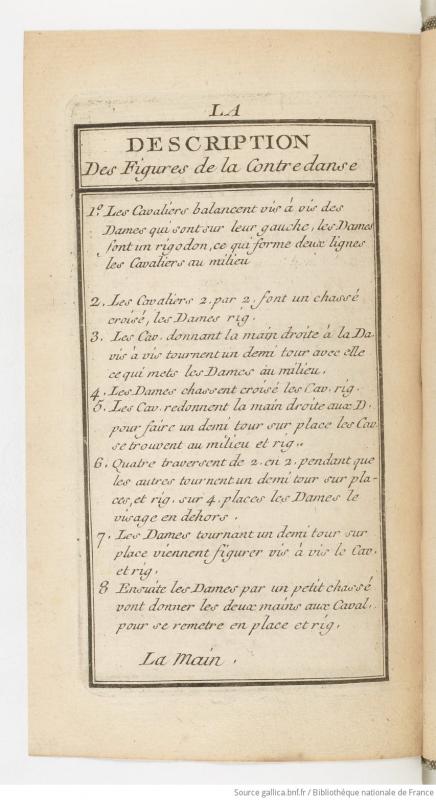 LA
DESCRIPTION
Des Figures de la Contredanse
1.º Les Cavaliers balancent vis à vis des
Dames qui sont sur leur gauche, les Dames
font un rigodon, ce qui forme deux lignes
les Cavaliers au milieu
2. Les Cavaliers 2. par 2. font un chassé
croisé, les Dames rig.
3. Les Cav. donnant la main droite à la Da.
vis à vis tournent un demi tour avec elle
ce qui mets les Dames au milieu.
4. Les Dames chassent croisé les Cav. rig.
5. Les Cav. redonnent la main droite aux D.
pour faire un demi tour sur place les Cav.
se trouvent au milieu et rig..
6. Quatre traversent de 2. en 2. pendant que
les autres tournent un demi tour sur pla-
ces, et rig. sur 4. places les Dames le
visage en dehors.
7. Les Dames tournant un demi tour sur
place viennent figurer vis à vis le Cav.
et rig.
8 Ensuite les Dames par un petit chassé
vont donner les deux mains aux Caval.
pour se remetre en place et rig.
La Main.
Source gallica.bnf.fr / Bibliothèque nationale de France